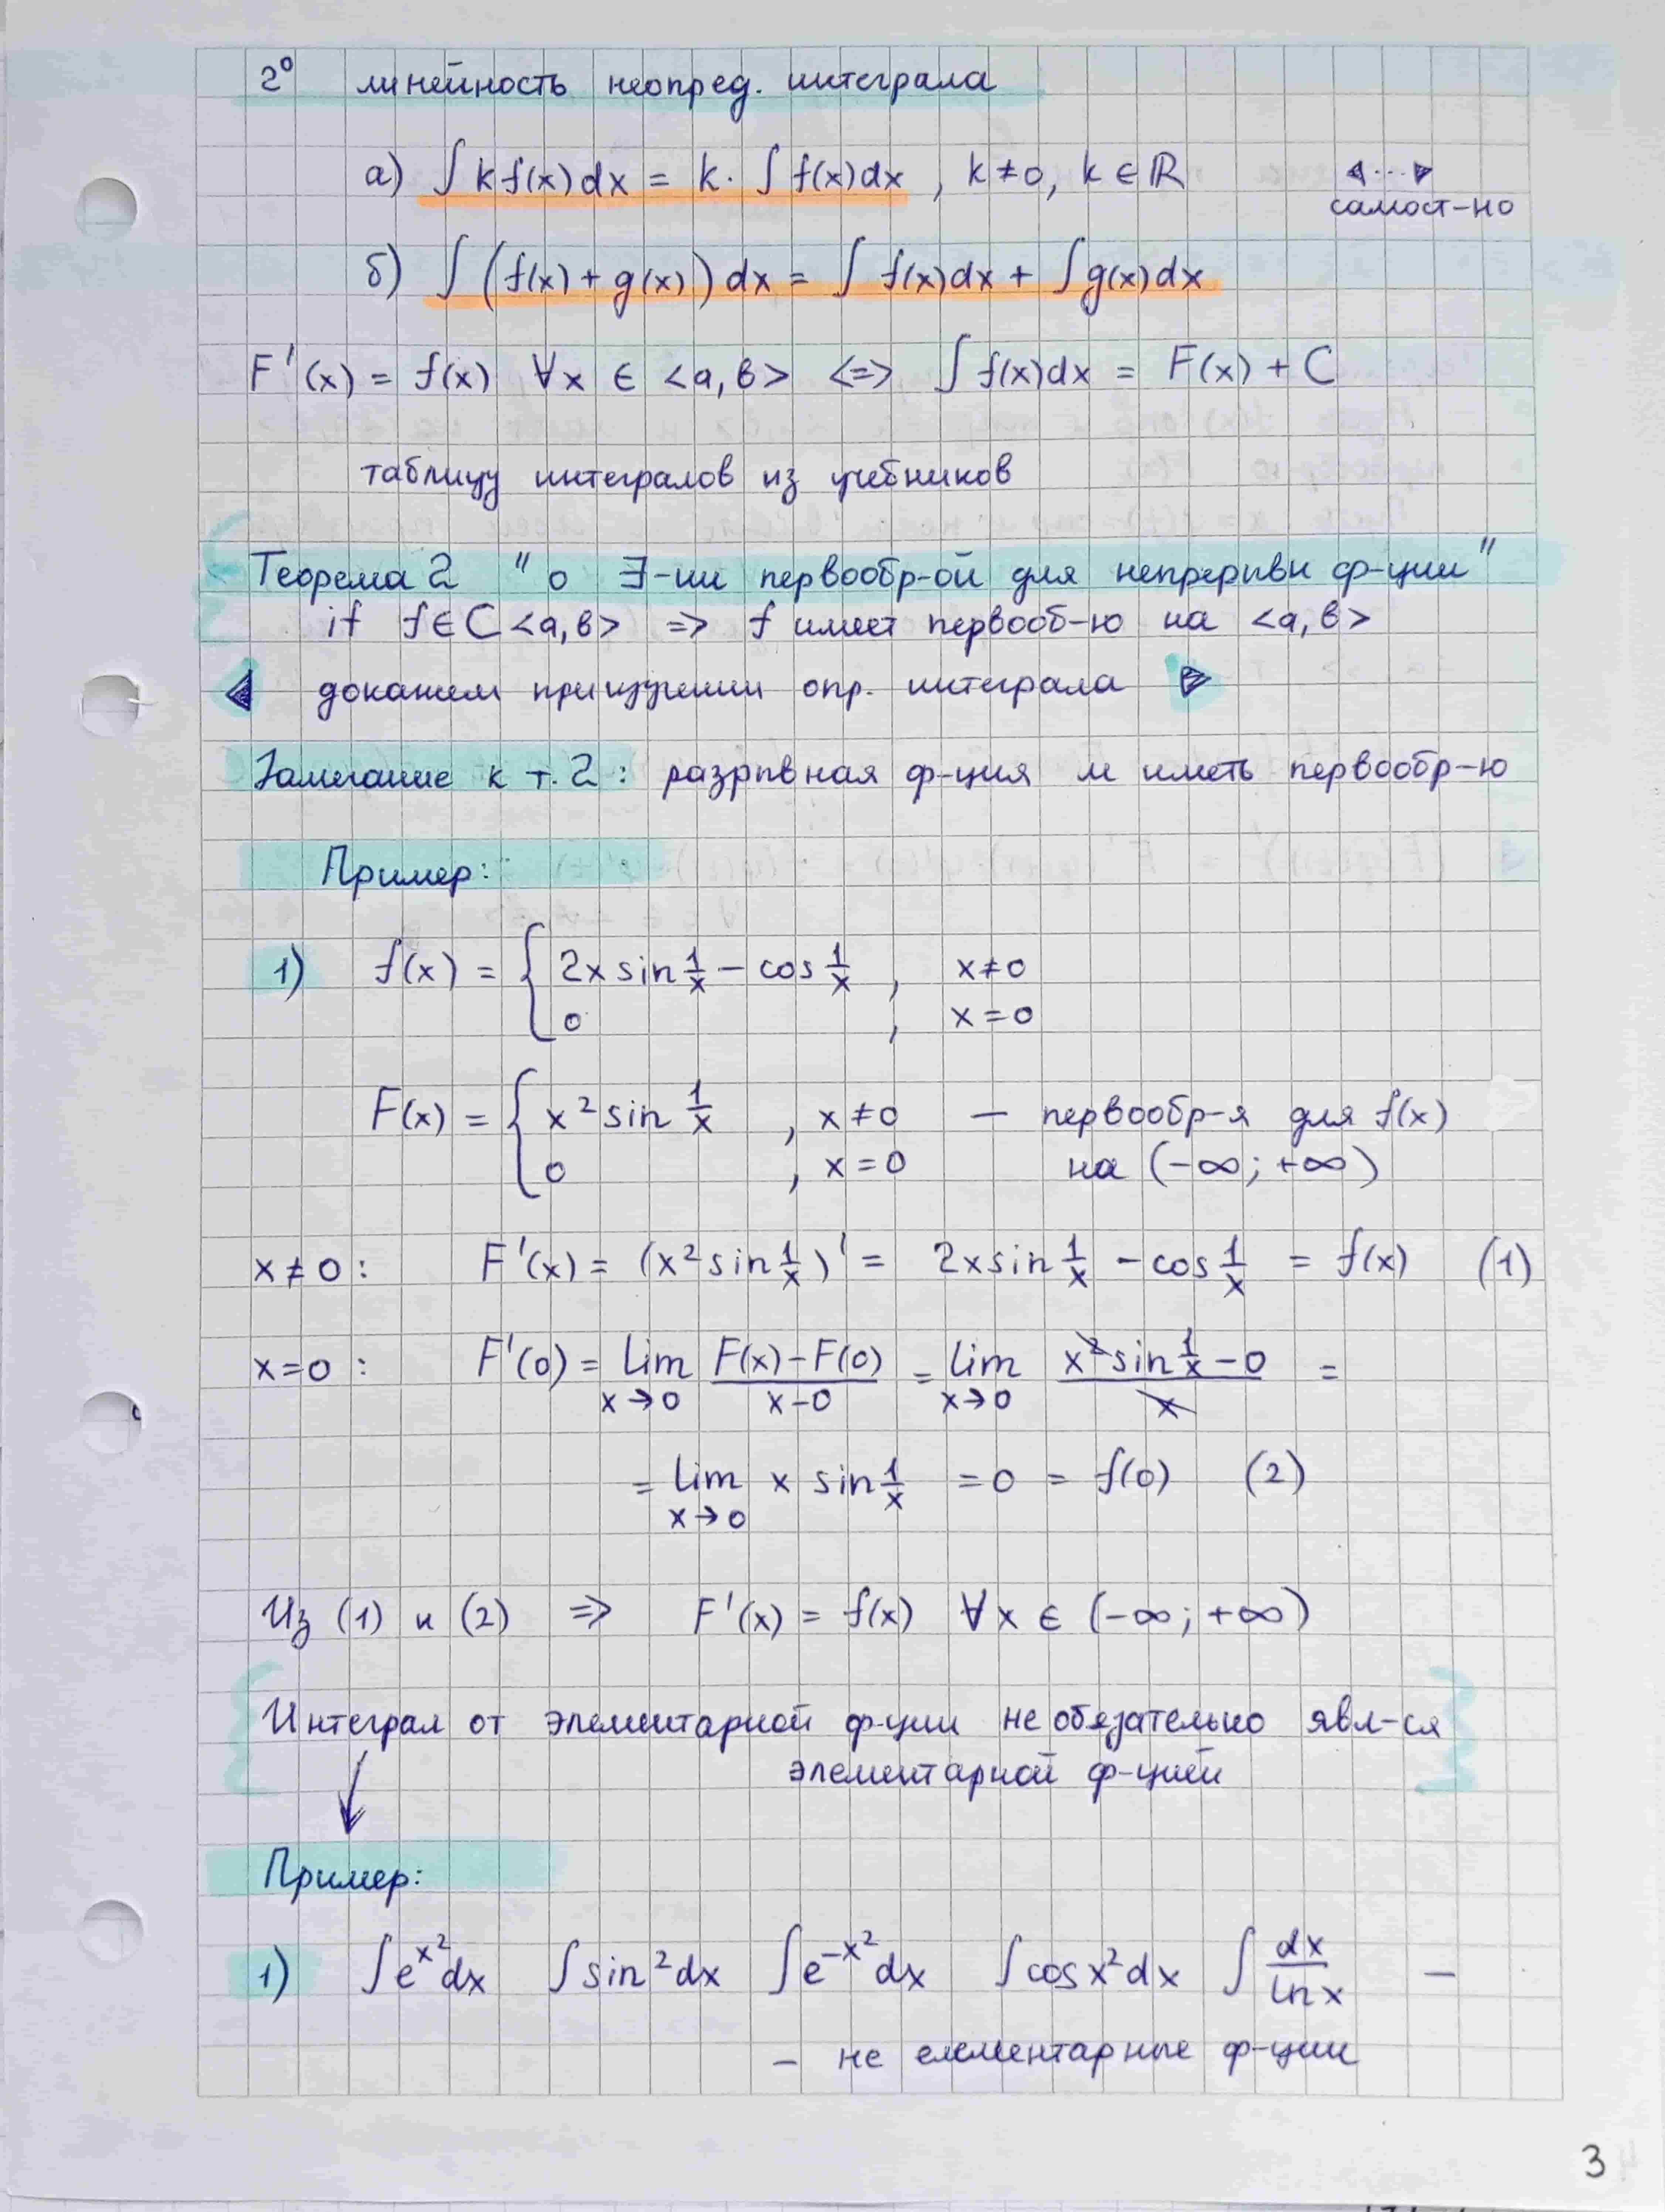 2° линейность неопред. интеграла
а) ∫ k f(x) dx = k · ∫ f(x) dx , k ≠ 0, k ∈ ℝ ◁...▷
самост-но
б) ∫ (f(x) + g(x)) dx = ∫ f(x) dx + ∫ g(x) dx
F'(x) = f(x) ∀x ∈ <a, b> <=> ∫ f(x) dx = F(x) + C
таблицу интегралов из учебников
Теорема 2 " о ∃-ии первообр-ой для непрерывн ф-ции"
if f ∈ C <a, b> => f имеет первооб-ю на <a, b>
◁ докажем при изучении опр. интеграла ▷
Замечание к т. 2 : разрывная ф-ция м иметь первообр-ю
Пример:
1) f(x) = { 2x sin 1/x − cos 1/x , x ≠ 0
0 , x = 0
F(x) = { x² sin 1/x , x ≠ 0 — первообр-я для f(x)
0 , x = 0 на (−∞; +∞)
x ≠ 0 : F'(x) = (x² sin 1/x)' = 2x sin 1/x − cos 1/x = f(x) (1)
x = 0 : F'(0) = lim x→0 (F(x) − F(0))/(x − 0) = lim x→0 (x² sin 1/x − 0)/x =
= lim x→0 x sin 1/x = 0 = f(0) (2)
Из (1) и (2) => F'(x) = f(x) ∀x ∈ (−∞; +∞)
Интеграл от элементарной ф-ции не обязательно явл-ся
элементарной ф-цией
Пример:
1) ∫ e^{x²} dx ∫ sin² dx ∫ e^{−x²} dx ∫ cos x² dx ∫ dx/ln x —
— не елементарные ф-ции
3